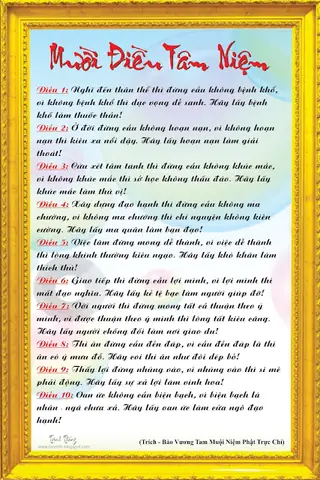 Mười Điều Tâm Niệm
Điều 1: Nghĩ đến thân thể thì đừng cầu không bệnh khổ,
vì không bệnh khổ thì dục vọng dễ sanh. Hãy lấy bệnh
khổ làm thuốc thần!
Điều 2: Ở đời đừng cầu không hoạn nạn, vì không hoạn
nạn thì kiêu xa nổi dậy. Hãy lấy hoạn nạn làm giải
thoát!
Điều 3: Cứu xét tâm tánh thì đừng cầu không khúc mắc,
vì không khúc mắc thì sở học không thấu đáo. Hãy lấy
khúc mắc làm thú vị!
Điều 4: Xây dựng đạo hạnh thì đừng cầu không ma
chướng, vì không ma chướng thì chí nguyện không kiên
cường. Hãy lấy ma quân làm bạn đạo!
Điều 5: Việc làm đừng mong dễ thành, vì việc dễ thành
thì lòng khinh thường kiêu ngạo. Hãy lấy khó khăn làm
thích thú!
Điều 6: Giao tiếp thì đừng cầu lợi mình, vì lợi mình thì
mất đạo nghĩa. Hãy lấy kẻ tệ bạc làm người giúp đỡ!
Điều 7: Với người thì đừng mong tất cả thuận theo ý
mình, vì được thuận theo ý mình thì lòng tất kiêu căng.
Hãy lấy người chống đối làm nơi giao du!
Điều 8: Thi ân đừng cầu đền đáp, vì cầu đền đáp là thi
ân có ý mưu đồ. Hãy coi thi ân như đôi dép bỏ!
Điều 9: Thấy lợi đừng nhúng vào, vì nhúng vào thì si mê
phải động. Hãy lấy sự xả lợi làm vinh hoa!
Điều 10: Oan ức không cần biện bạch, vì biện bạch là
nhân - ngã chưa xả. Hãy lấy oan ức làm cửa ngõ đạo
hạnh!
(Trích - Bảo Vương Tam Muội Niệm Phật Trực Chỉ)